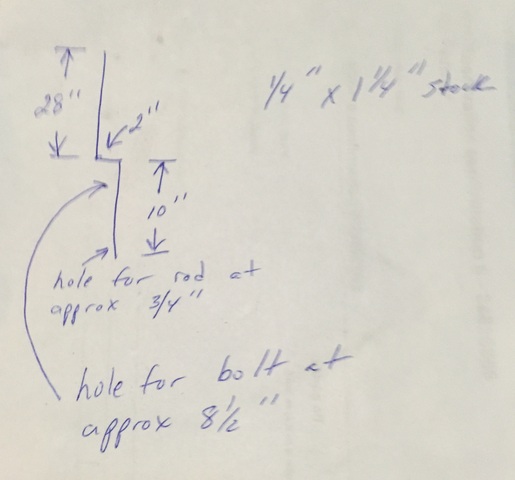 1/4" x 1 1/4" stock
28"
2"
10"
hole for rod at
approx 3/4"
hole for bolt at
approx 8 1/2"